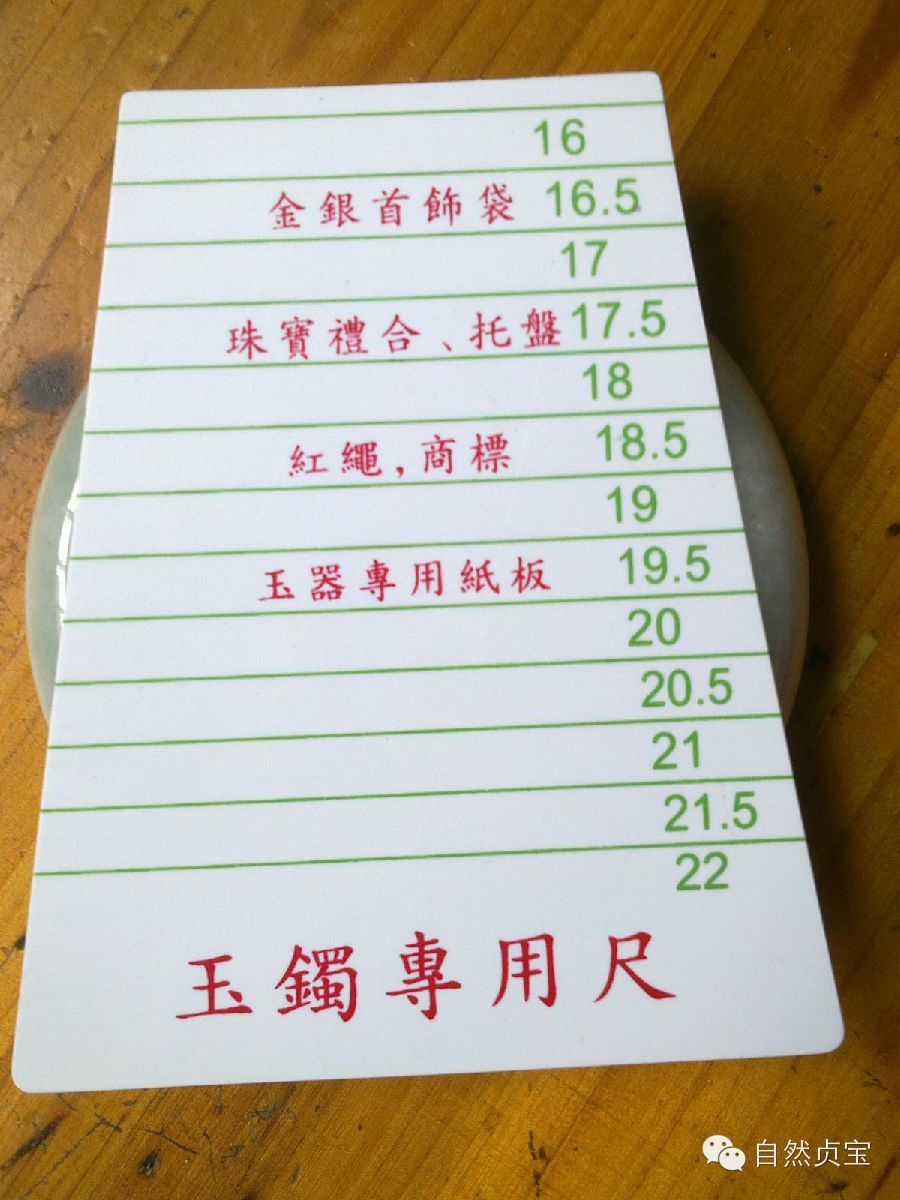 16
金銀首飾袋 16.5
17
珠寶禮合、托盤 17.5
18
紅繩,商標 18.5
19
玉器專用紙板 19.5
20
20.5
21
21.5
22
玉鐲專用尺
自然贞宝